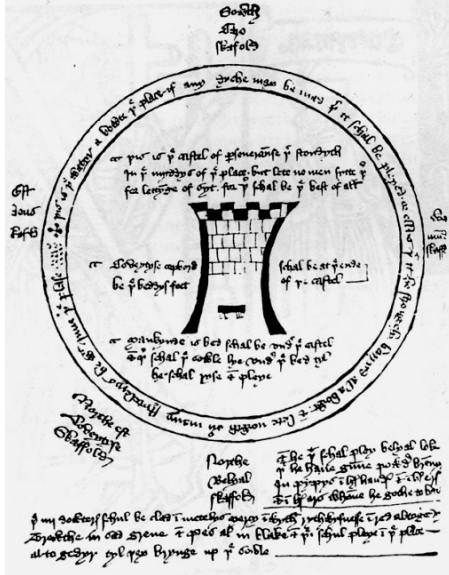 Sowth
Caro
skafold
þis is þe watyr a bowte þe place, if any dyche may be mad þer it schal be pleyed, or ellys þat it be strongely barryd al a bowt, & lete nowth ouyr many stytelerys be wtinne þe plase
þis is þe castel of perseueraunse þt stondyth
In þe myddys of þe place, but lete no men sytte þer
for lettynge of syt, for þer schal be þe best of all
Est
deus
skafold
Coveytyse copbord schal be at þe ende
be þe beddys feet of þe castel
Mankynde is bed schal be vndyr þe castel
& þer schal þe sowle lye vndyr þe bed tyl
he schal ryse & pleye
Northe est
Coveytyse
skaffold
Northe
Belyal
skaffold
& he þt schal pley belyal loke
þt he haue gunne powdyr brennyng
In pypys in hys handys & in hys erys
& in hys ars whanne he gothe to batayl
þe iiij dowterys schul be clad in mentelys, mercy in wyth, rythwysnesse in red al togedyr
Trewthe in sad grene & pes al in blake & þei schul pleye in þe place
al to gedyr tyl þey brynge up þe sowle